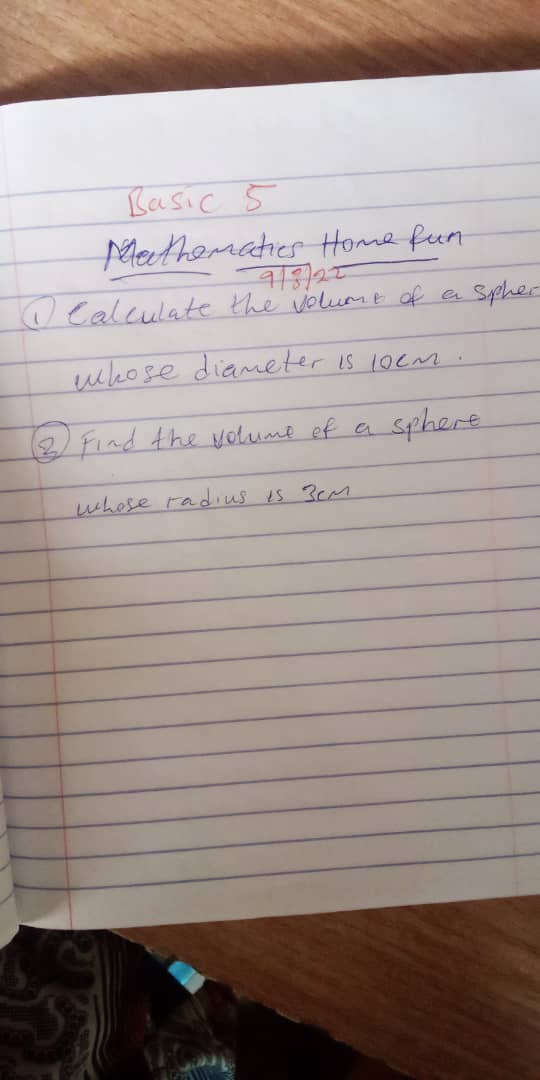 Basic 5
Mathematics Home fun
9/8/22
① Calculate the volume of a spher
whose diameter is 10cm.
② Find the volume of a sphere
whose radius is 3cm